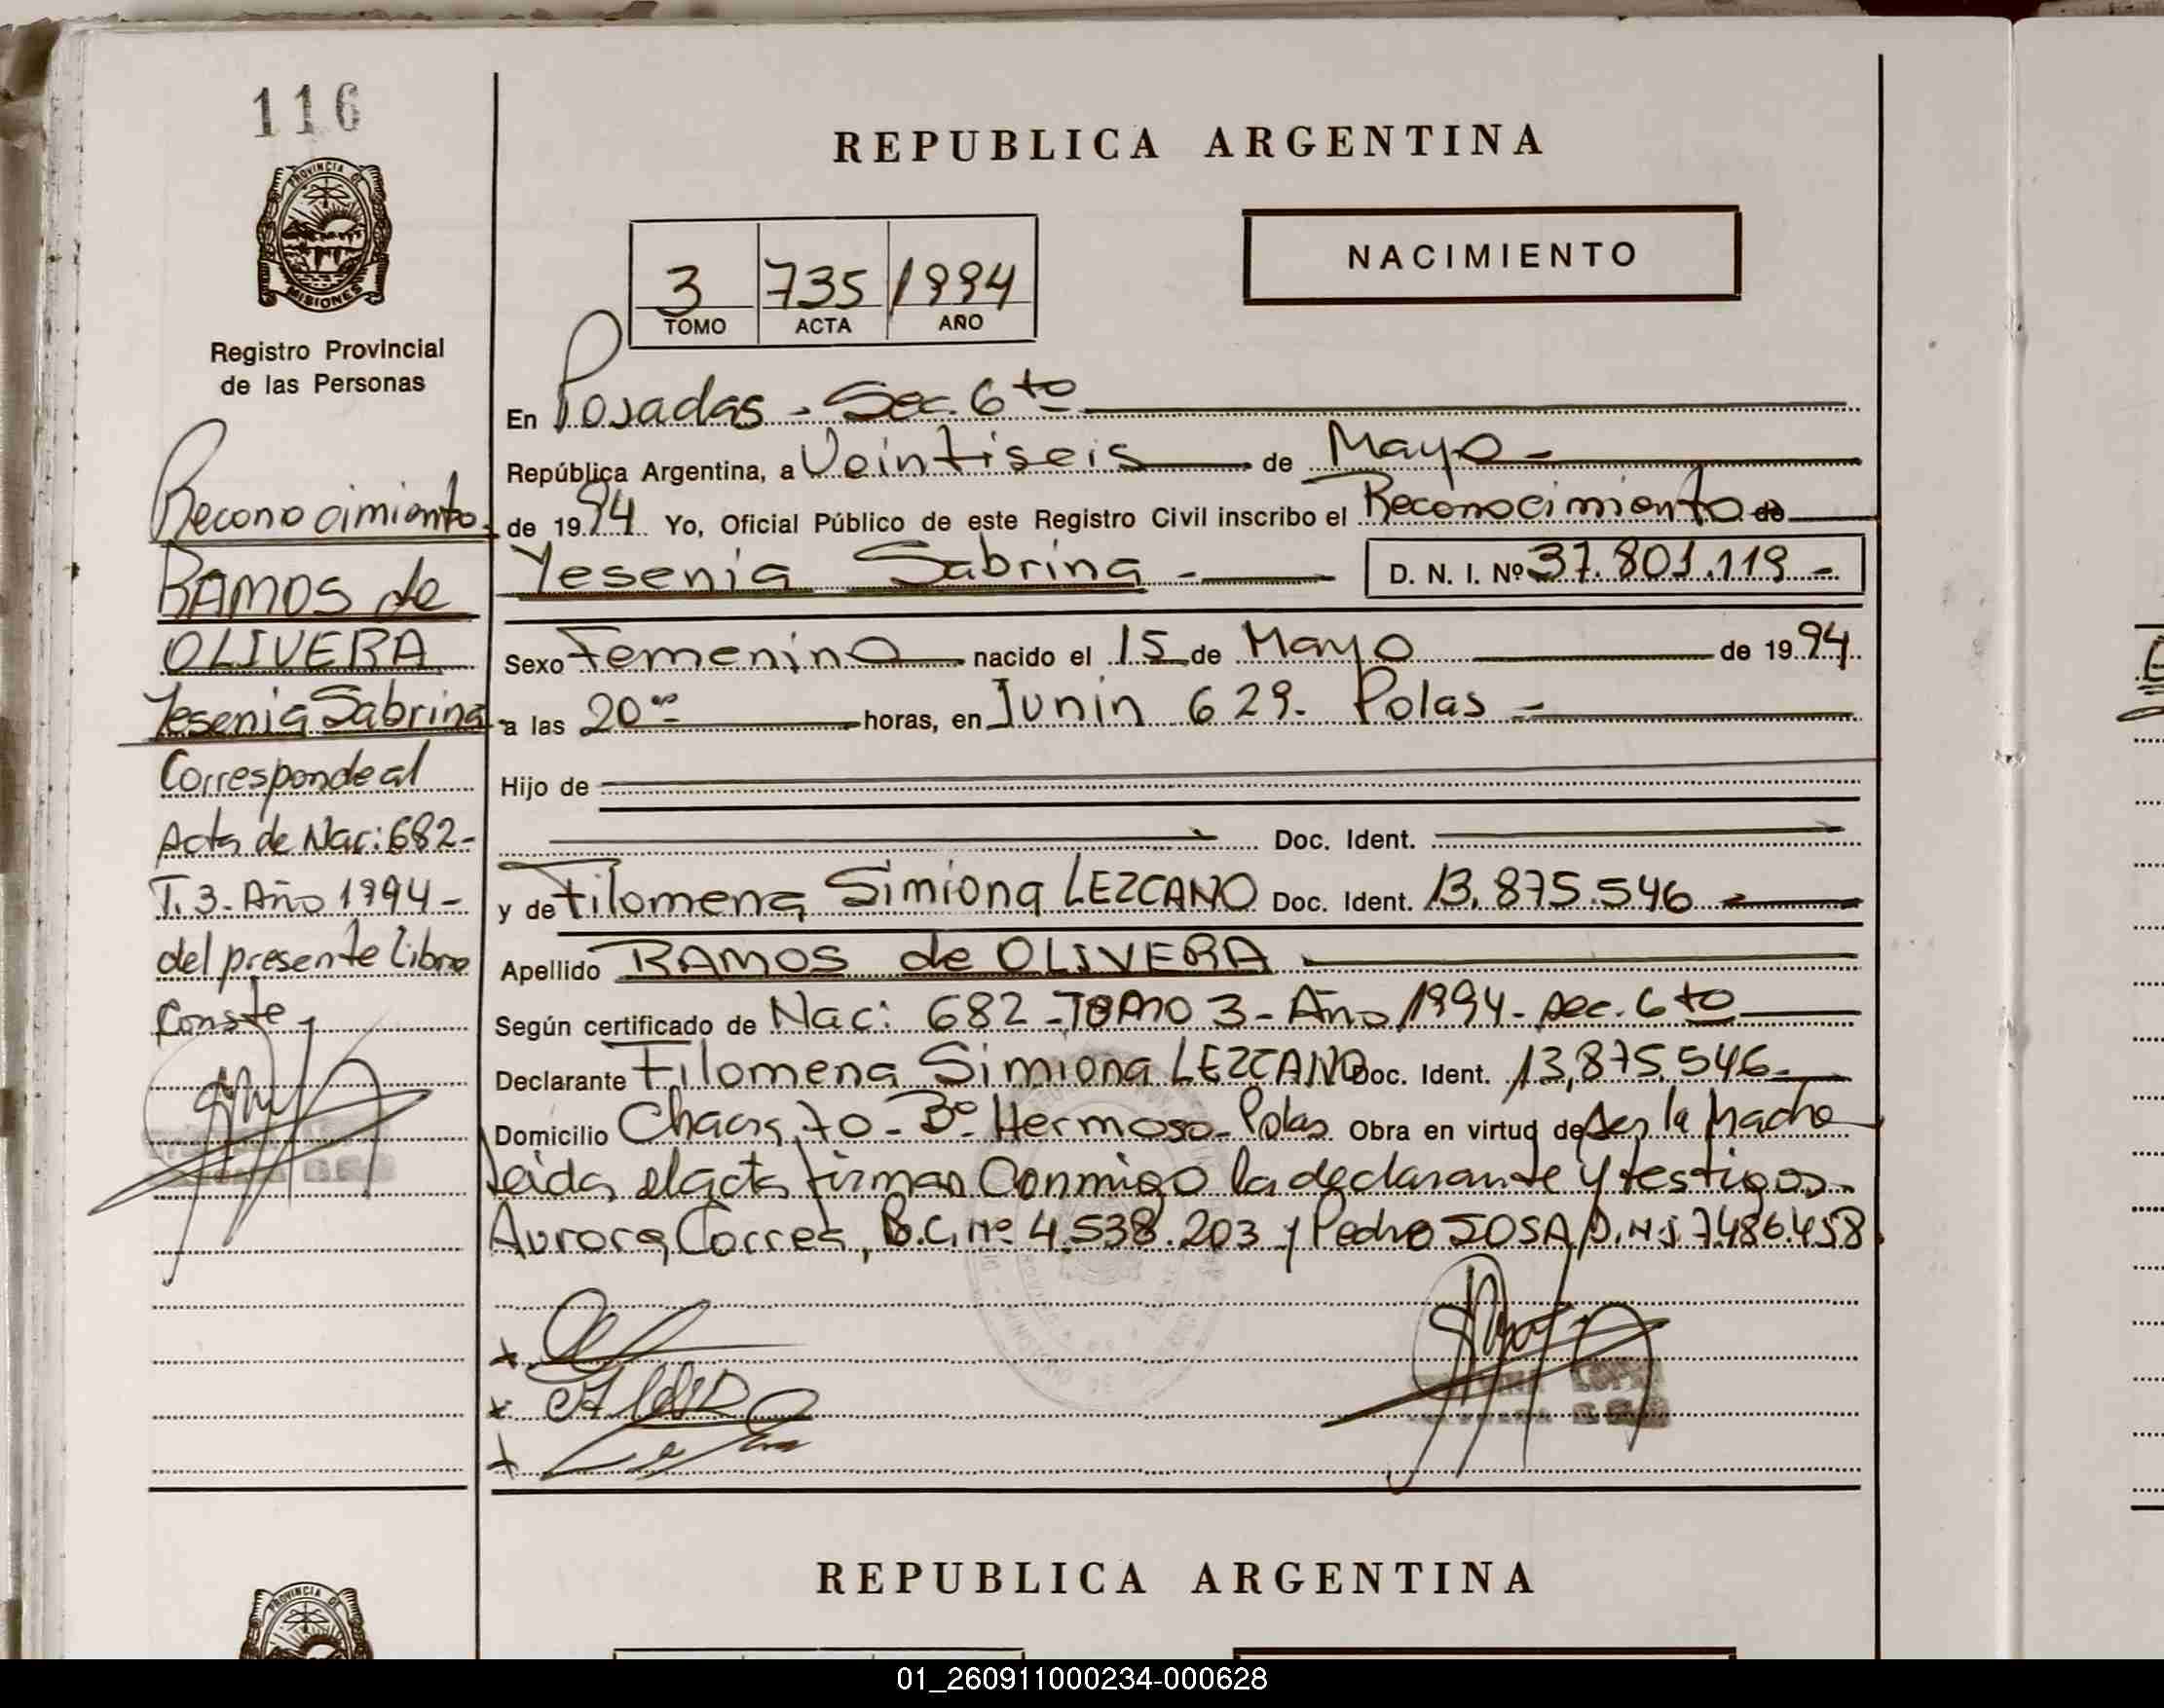 116
PROVINCIA DE
MISIONES
Registro Provincial
de las Personas
Reconocimiento
RAMOS de
OLIVERA
Yesenia Sabrina
Corresponde al
Acta de Nac: 682-
T. 3- Año 1994-
del presente libro
Conste-
REPUBLICA ARGENTINA
NACIMIENTO
3 735 1994
TOMO ACTA AÑO
En Posadas - Sec. 6to
República Argentina, a Veintiseis de Mayo-
de 1994 Yo, Oficial Público de este Registro Civil inscribo el Reconocimiento de
Yesenia Sabrina - D. N. I. Nº 37.801.119-
Sexo Femenino nacido el 15 de Mayo de 1994
a las 20 horas, en Junin 629. Pdas -
Hijo de
Doc. Ident.
y de Filomena Simiona LEZCANO Doc. Ident. 13.875.546
Apellido RAMOS de OLIVERA
Según certificado de Nac: 682 - TOMO 3 - Año 1994 - sec. 6to
Declarante Filomena Simiona LEZCANO Doc. Ident. 13,875.546-
Domicilio Chacra 70 - Bº Hermoso - Pdas Obra en virtud de ser la Madre
Leida el acta firman Conmigo la declarante y testigos.
Aurora Correa, B.C. Nº 4.538.203 y Pedro SOSA D.N.I. 7.486.458
REPUBLICA ARGENTINA
PROVINCIA DE
01_260911000234-000628